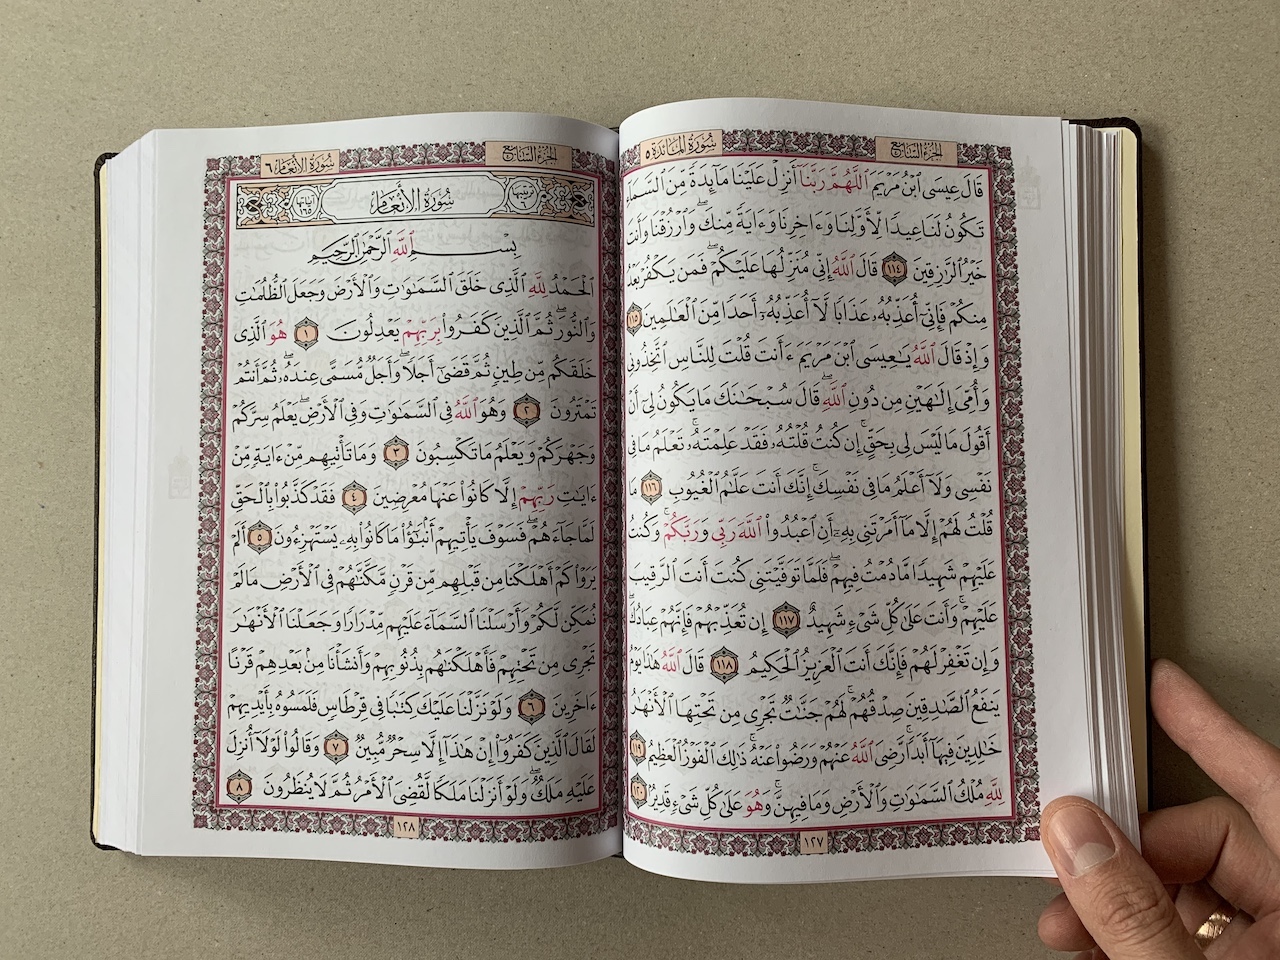 الجُزْءُ السَّابِعُ سُورَةُ المَائِدَة ٥
قَالَ عِيسَى ٱبْنُ مَرْيَمَ ٱللَّهُمَّ رَبَّنَآ أَنزِلْ عَلَيْنَا مَآئِدَةً مِّنَ ٱلسَّمَآءِ
تَكُونُ لَنَا عِيدًا لِّأَوَّلِنَا وَءَاخِرِنَا وَءَايَةً مِّنكَۖ وَٱرْزُقْنَا وَأَنتَ
خَيْرُ ٱلرَّٰزِقِينَ ١١٤ قَالَ ٱللَّهُ إِنِّي مُنَزِّلُهَا عَلَيْكُمْۖ فَمَن يَكْفُرْ بَعْدُ
مِنكُمْ فَإِنِّيٓ أُعَذِّبُهُۥ عَذَابًا لَّآ أُعَذِّبُهُۥٓ أَحَدًا مِّنَ ٱلْعَٰلَمِينَ ١١٥
وَإِذْ قَالَ ٱللَّهُ يَٰعِيسَى ٱبْنَ مَرْيَمَ ءَأَنتَ قُلْتَ لِلنَّاسِ ٱتَّخِذُونِي
وَأُمِّيَ إِلَٰهَيْنِ مِن دُونِ ٱللَّهِۖ قَالَ سُبْحَٰنَكَ مَا يَكُونُ لِيٓ أَنْ
أَقُولَ مَا لَيْسَ لِي بِحَقٍّۚ إِن كُنتُ قُلْتُهُۥ فَقَدْ عَلِمْتَهُۥۚ تَعْلَمُ مَا فِي
نَفْسِي وَلَآ أَعْلَمُ مَا فِي نَفْسِكَۚ إِنَّكَ أَنتَ عَلَّٰمُ ٱلْغُيُوبِ ١١٦ مَا
قُلْتُ لَهُمْ إِلَّا مَآ أَمَرْتَنِي بِهِۦٓ أَنِ ٱعْبُدُوا۟ ٱللَّهَ رَبِّي وَرَبَّكُمْۚ وَكُنتُ
عَلَيْهِمْ شَهِيدًا مَّا دُمْتُ فِيهِمْۖ فَلَمَّا تَوَفَّيْتَنِي كُنتَ أَنتَ ٱلرَّقِيبَ
عَلَيْهِمْۚ وَأَنتَ عَلَىٰ كُلِّ شَيْءٍ شَهِيدٌ ١١٧ إِن تُعَذِّبْهُمْ فَإِنَّهُمْ عِبَادُكَۖ
وَإِن تَغْفِرْ لَهُمْ فَإِنَّكَ أَنتَ ٱلْعَزِيزُ ٱلْحَكِيمُ ١١٨ قَالَ ٱللَّهُ هَٰذَا يَوْمُ
يَنفَعُ ٱلصَّٰدِقِينَ صِدْقُهُمْۚ لَهُمْ جَنَّٰتٌ تَجْرِي مِن تَحْتِهَا ٱلْأَنْهَٰرُ
خَٰلِدِينَ فِيهَآ أَبَدًاۚ رَّضِيَ ٱللَّهُ عَنْهُمْ وَرَضُوا۟ عَنْهُۚ ذَٰلِكَ ٱلْفَوْزُ ٱلْعَظِيمُ ١١٩
لِلَّهِ مُلْكُ ٱلسَّمَٰوَٰتِ وَٱلْأَرْضِ وَمَا فِيهِنَّۚ وَهُوَ عَلَىٰ كُلِّ شَيْءٍ قَدِيرٌۢ ١٢٠
١٢٧
الجُزْءُ السَّابِعُ سُورَةُ الأَنْعَام ٦
ترتيبها ٦ سُورَةُ الأَنْعَام آياتها ١٦٥
بِسْمِ ٱللَّهِ ٱلرَّحْمَٰنِ ٱلرَّحِيمِ
ٱلْحَمْدُ لِلَّهِ ٱلَّذِي خَلَقَ ٱلسَّمَٰوَٰتِ وَٱلْأَرْضَ وَجَعَلَ ٱلظُّلُمَٰتِ
وَٱلنُّورَۖ ثُمَّ ٱلَّذِينَ كَفَرُوا۟ بِرَبِّهِمْ يَعْدِلُونَ ١ هُوَ ٱلَّذِي
خَلَقَكُم مِّن طِينٍ ثُمَّ قَضَىٰٓ أَجَلًاۖ وَأَجَلٌ مُّسَمًّى عِندَهُۥۖ ثُمَّ أَنتُمْ
تَمْتَرُونَ ٢ وَهُوَ ٱللَّهُ فِي ٱلسَّمَٰوَٰتِ وَفِي ٱلْأَرْضِۖ يَعْلَمُ سِرَّكُمْ
وَجَهْرَكُمْ وَيَعْلَمُ مَا تَكْسِبُونَ ٣ وَمَا تَأْتِيهِم مِّنْ ءَايَةٍ مِّنْ
ءَايَٰتِ رَبِّهِمْ إِلَّا كَانُوا۟ عَنْهَا مُعْرِضِينَ ٤ فَقَدْ كَذَّبُوا۟ بِٱلْحَقِّ
لَمَّا جَآءَهُمْۖ فَسَوْفَ يَأْتِيهِمْ أَنۢبَٰٓؤُا۟ مَا كَانُوا۟ بِهِۦ يَسْتَهْزِءُونَ ٥ أَلَمْ
يَرَوْا۟ كَمْ أَهْلَكْنَا مِن قَبْلِهِم مِّن قَرْنٍ مَّكَّنَّٰهُمْ فِي ٱلْأَرْضِ مَا لَمْ
نُمَكِّن لَّكُمْ وَأَرْسَلْنَا ٱلسَّمَآءَ عَلَيْهِم مِّدْرَارًا وَجَعَلْنَا ٱلْأَنْهَٰرَ
تَجْرِي مِن تَحْتِهِمْ فَأَهْلَكْنَٰهُم بِذُنُوبِهِمْ وَأَنشَأْنَا مِنۢ بَعْدِهِمْ قَرْنًا
ءَاخَرِينَ ٦ وَلَوْ نَزَّلْنَا عَلَيْكَ كِتَٰبًا فِي قِرْطَاسٍ فَلَمَسُوهُ بِأَيْدِيهِمْ
لَقَالَ ٱلَّذِينَ كَفَرُوٓا۟ إِنْ هَٰذَآ إِلَّا سِحْرٌ مُّبِينٌ ٧ وَقَالُوا۟ لَوْلَآ أُنزِلَ
عَلَيْهِ مَلَكٌۖ وَلَوْ أَنزَلْنَا مَلَكًا لَّقُضِيَ ٱلْأَمْرُ ثُمَّ لَا يُنظَرُونَ ٨
١٢٨